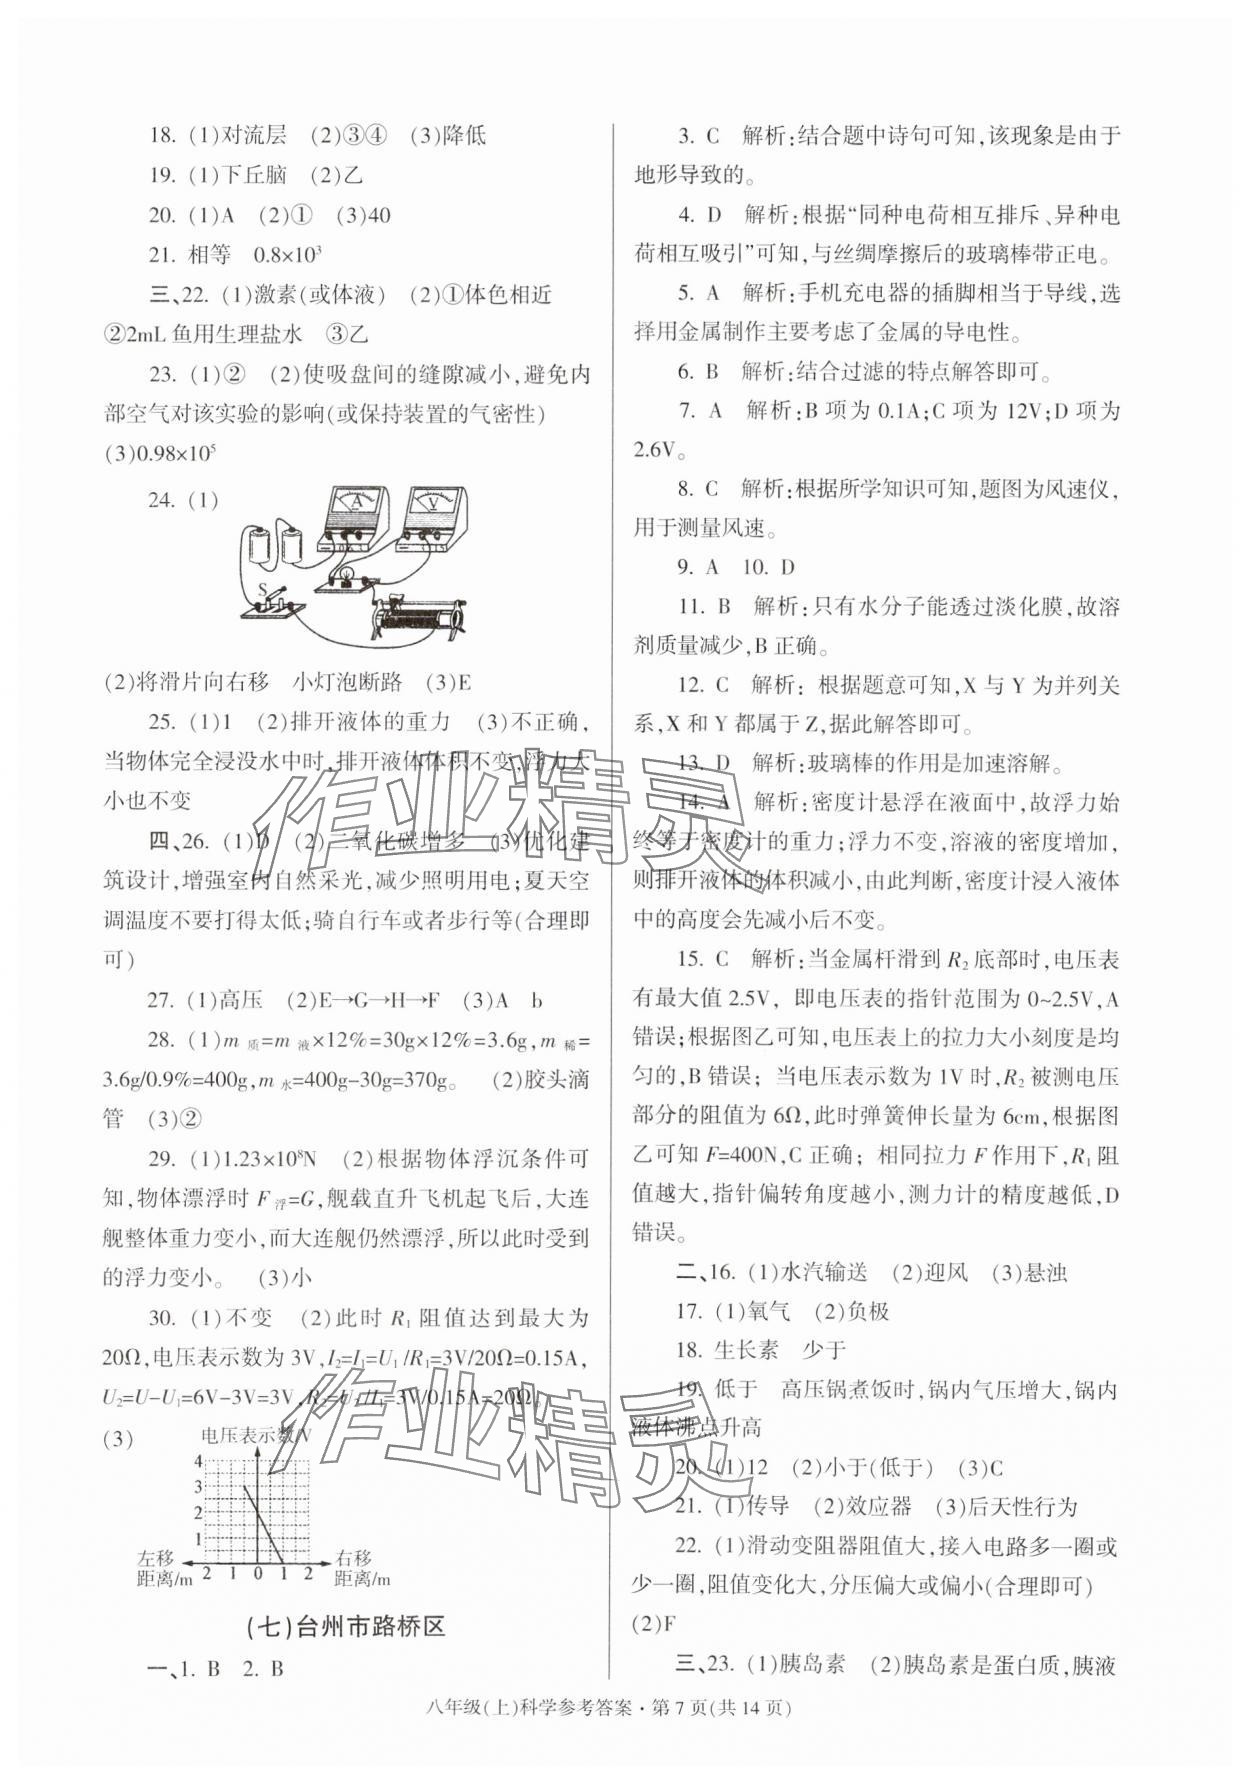 18. (1)对流层　(2)③④　(3)降低
19. (1)下丘脑　(2)乙
20. (1)A　(2)①　(3)40
21. 相等　0.8×10³
三、22. (1)激素(或体液)　(2)①体色相近
②2mL 鱼用生理盐水　③乙
23. (1)②　(2)使吸盘间的缝隙减小,避免内
部空气对该实验的影响(或保持装置的气密性)
(3)0.98×10⁵
24. (1)
A
V
S
(2)将滑片向右移　小灯泡断路　(3)E
25. (1)1　(2)排开液体的重力　(3)不正确,
当物体完全浸没水中时,排开液体体积不变,浮力大
小也不变
四、26. (1)D　(2)二氧化碳增多　(3)优化建
筑设计,增强室内自然采光,减少照明用电;夏天空
调温度不要打得太低;骑自行车或者步行等(合理即
可)
27. (1)高压　(2)E→G→H→F　(3)A　b
28. (1)m质=m液×12%=30g×12%=3.6g,m稀=
3.6g/0.9%=400g,m水=400g-30g=370g。　(2)胶头滴
管　(3)②
29. (1)1.23×10⁸N　(2)根据物体浮沉条件可
知,物体漂浮时 F浮=G,舰载直升飞机起飞后,大连
舰整体重力变小,而大连舰仍然漂浮,所以此时受到
的浮力变小。　(3)小
30. (1)不变　(2)此时 R₁ 阻值达到最大为
20Ω,电压表示数为 3V,I₂=I₁=U₁/R₁=3V/20Ω=0.15A,
U₂=U-U₁=6V-3V=3V,R₂=U₂/I₁=3V/0.15A=20Ω。
(3)
电压表示数/V
4
3
2
1
左移　右移
距离/m 2 1 0 1 2 距离/m
(七)台州市路桥区
一、1. B　2. B
3. C　解析:结合题中诗句可知,该现象是由于
地形导致的。
4. D　解析:根据“同种电荷相互排斥、异种电
荷相互吸引”可知,与丝绸摩擦后的玻璃棒带正电。
5. A　解析:手机充电器的插脚相当于导线,选
择用金属制作主要考虑了金属的导电性。
6. B　解析:结合过滤的特点解答即可。
7. A　解析:B 项为 0.1A;C 项为 12V;D 项为
2.6V。
8. C　解析:根据所学知识可知,题图为风速仪,
用于测量风速。
9. A　10. D
11. B　解析:只有水分子能透过淡化膜,故溶
剂质量减少,B 正确。
12. C　解析: 根据题意可知,X 与 Y 为并列关
系,X 和 Y 都属于 Z,据此解答即可。
13. D　解析:玻璃棒的作用是加速溶解。
14. A　解析:密度计悬浮在液面中,故浮力始
终等于密度计的重力;浮力不变,溶液的密度增加,
则排开液体的体积减小,由此判断,密度计浸入液体
中的高度会先减小后不变。
15. C　解析:当金属杆滑到 R₂ 底部时,电压表
有最大值 2.5V, 即电压表的指针范围为 0~2.5V,A
错误;根据图乙可知,电压表上的拉力大小刻度是均
匀的,B 错误; 当电压表示数为 1V 时,R₂ 被测电压
部分的阻值为 6Ω,此时弹簧伸长量为 6cm,根据图
乙可知 F=400N,C 正确; 相同拉力 F 作用下,R₁ 阻
值越大,指针偏转角度越小,测力计的精度越低,D
错误。
二、16. (1)水汽输送　(2)迎风　(3)悬浊
17. (1)氧气　(2)负极
18. 生长素　少于
19. 低于　高压锅煮饭时,锅内气压增大,锅内
液体沸点升高
20. (1)12　(2)小于(低于)　(3)C
21. (1)传导　(2)效应器　(3)后天性行为
22. (1)滑动变阻器阻值大,接入电路多一圈或
少一圈,阻值变化大,分压偏大或偏小(合理即可)
(2)F
三、23. (1)胰岛素　(2)胰岛素是蛋白质,胰液
八年级(上)科学参考答案·第 7 页(共 14 页)
作业精灵
作业精灵